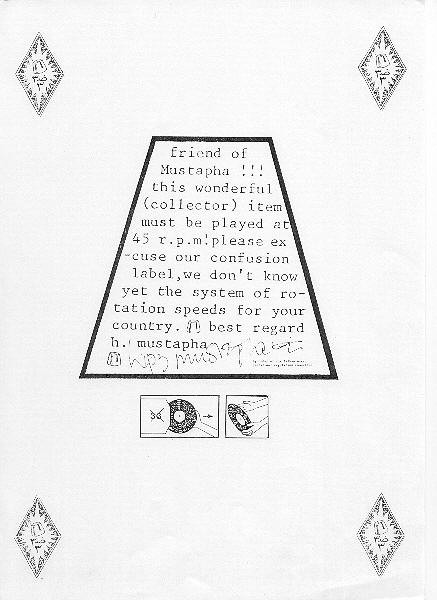 friend of
Mustapha !!!
this wonderful
(collector) item
must be played at
45 r.p.m!please ex
-cuse our confusion
label,we don't know
yet the system of ro-
tation speeds for your
country. best regard
h.! mustapha